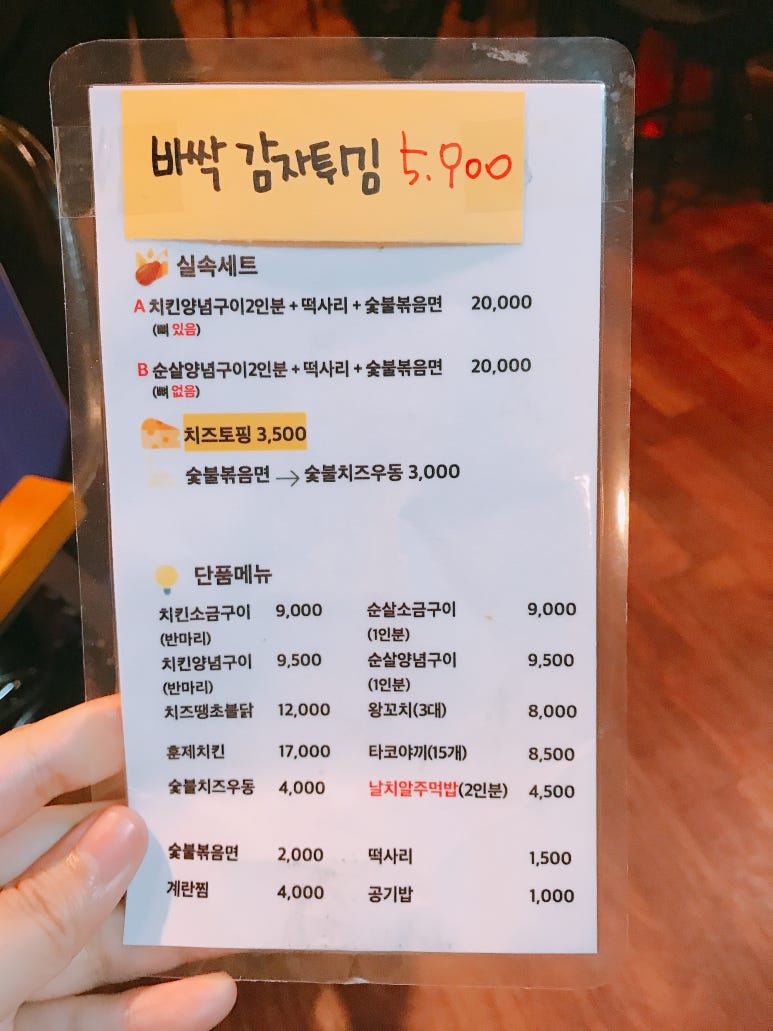 바싹 감자튀김 5.900
실속세트
A 치킨양념구이2인분 + 떡사리 + 숯불볶음면 20,000
(뼈 있음)
B 순살양념구이2인분 + 떡사리 + 숯불볶음면 20,000
(뼈 없음)
치즈토핑 3,500
숯불볶음면 → 숯불치즈우동 3,000
단품메뉴
치킨소금구이 9,000 순살소금구이 9,000
(반마리) (1인분)
치킨양념구이 9,500 순살양념구이 9,500
(반마리) (1인분)
치즈땡초불닭 12,000 왕꼬치(3대) 8,000
훈제치킨 17,000 타코야끼(15개) 8,500
숯불치즈우동 4,000 날치알주먹밥(2인분) 4,500
숯불볶음면 2,000 떡사리 1,500
계란찜 4,000 공기밥 1,000